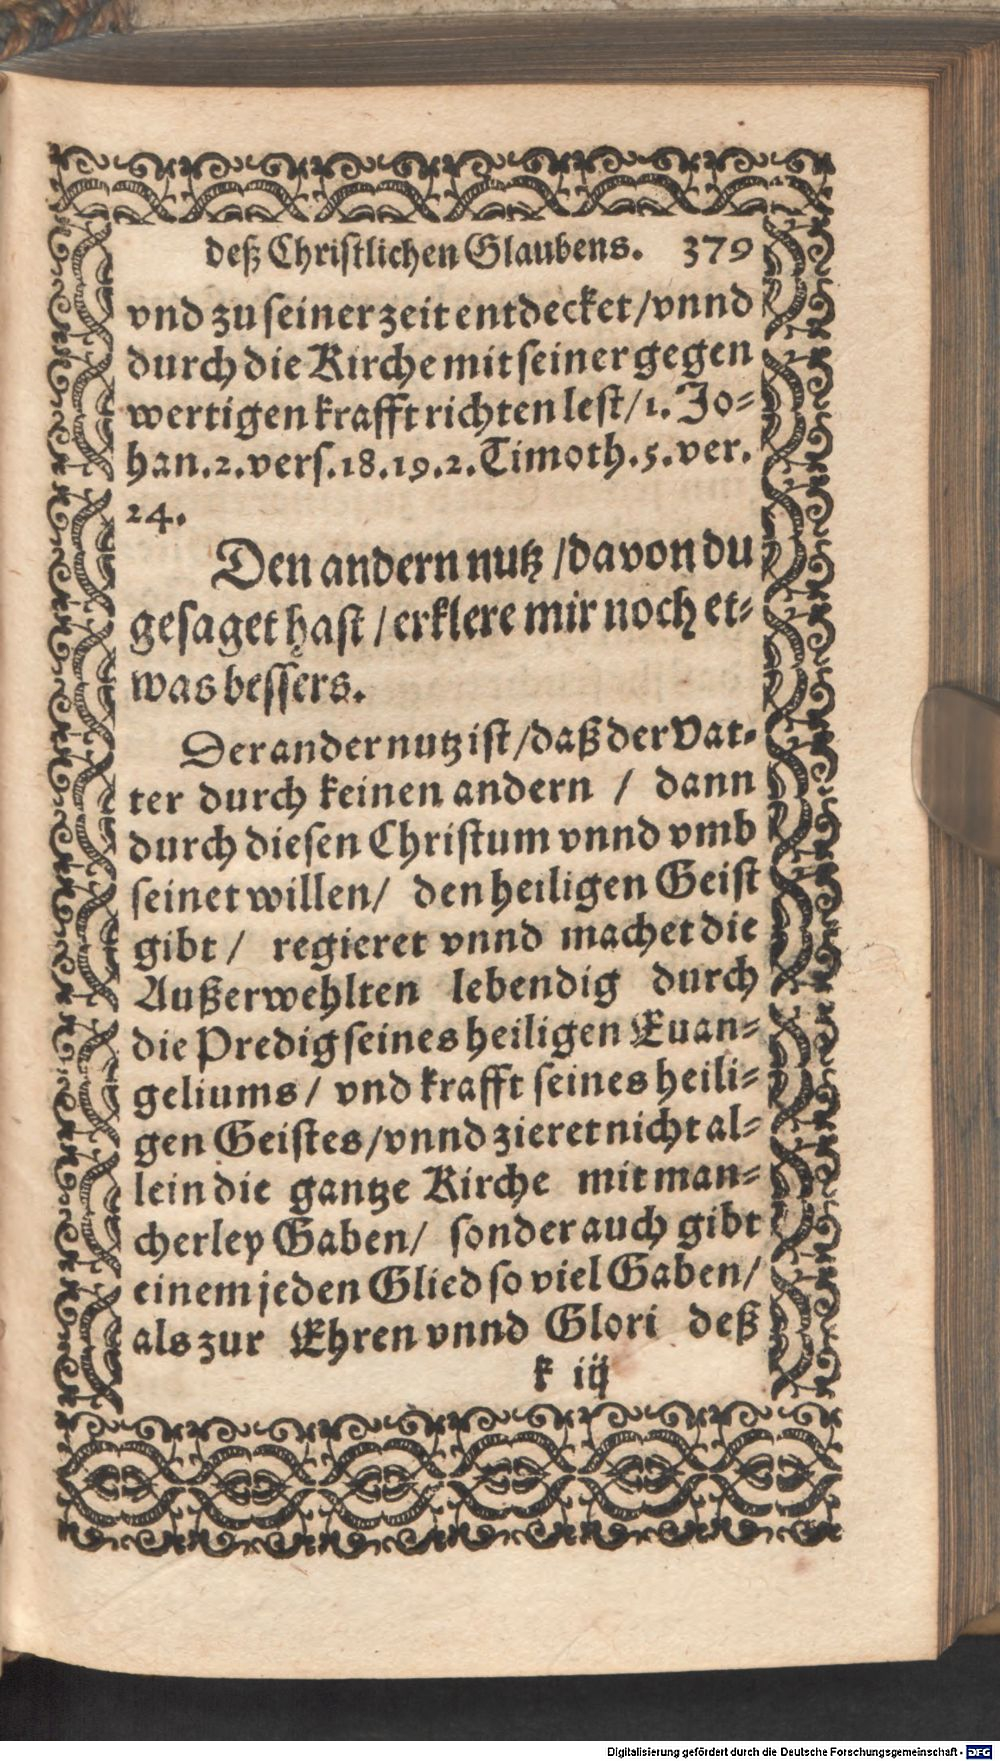 deß Christlichen Glaubens. 379
vnd zu seiner zeit entdecket/vnnd
durch die Kirche mit seiner gegen
wertigen krafft richten lest/1. Jo-
han.2.vers.18.19.2.Timoth.5.ver.
24.
Den andern nutz/davon du
gesaget hast/erklere mir noch et-
was bessers.
Der ander nutz ist/daß der Vat-
ter durch keinen andern / dann
durch diesen Christum vnnd vmb
seinet willen/ den heiligen Geist
gibt/ regieret vnnd machet die
Außerwehlten lebendig durch
die Predig seines heiligen Euan-
geliums/ vnd krafft seines heili-
gen Geistes/vnnd zieret nicht al-
lein die gantze Kirche mit man-
cherley Gaben/ sonder auch gibt
einem jeden Glied so viel Gaben/
als zur Ehren vnnd Glori deß
k iij
Digitalisierung gefördert durch die Deutsche Forschungsgemeinschaft - DFG